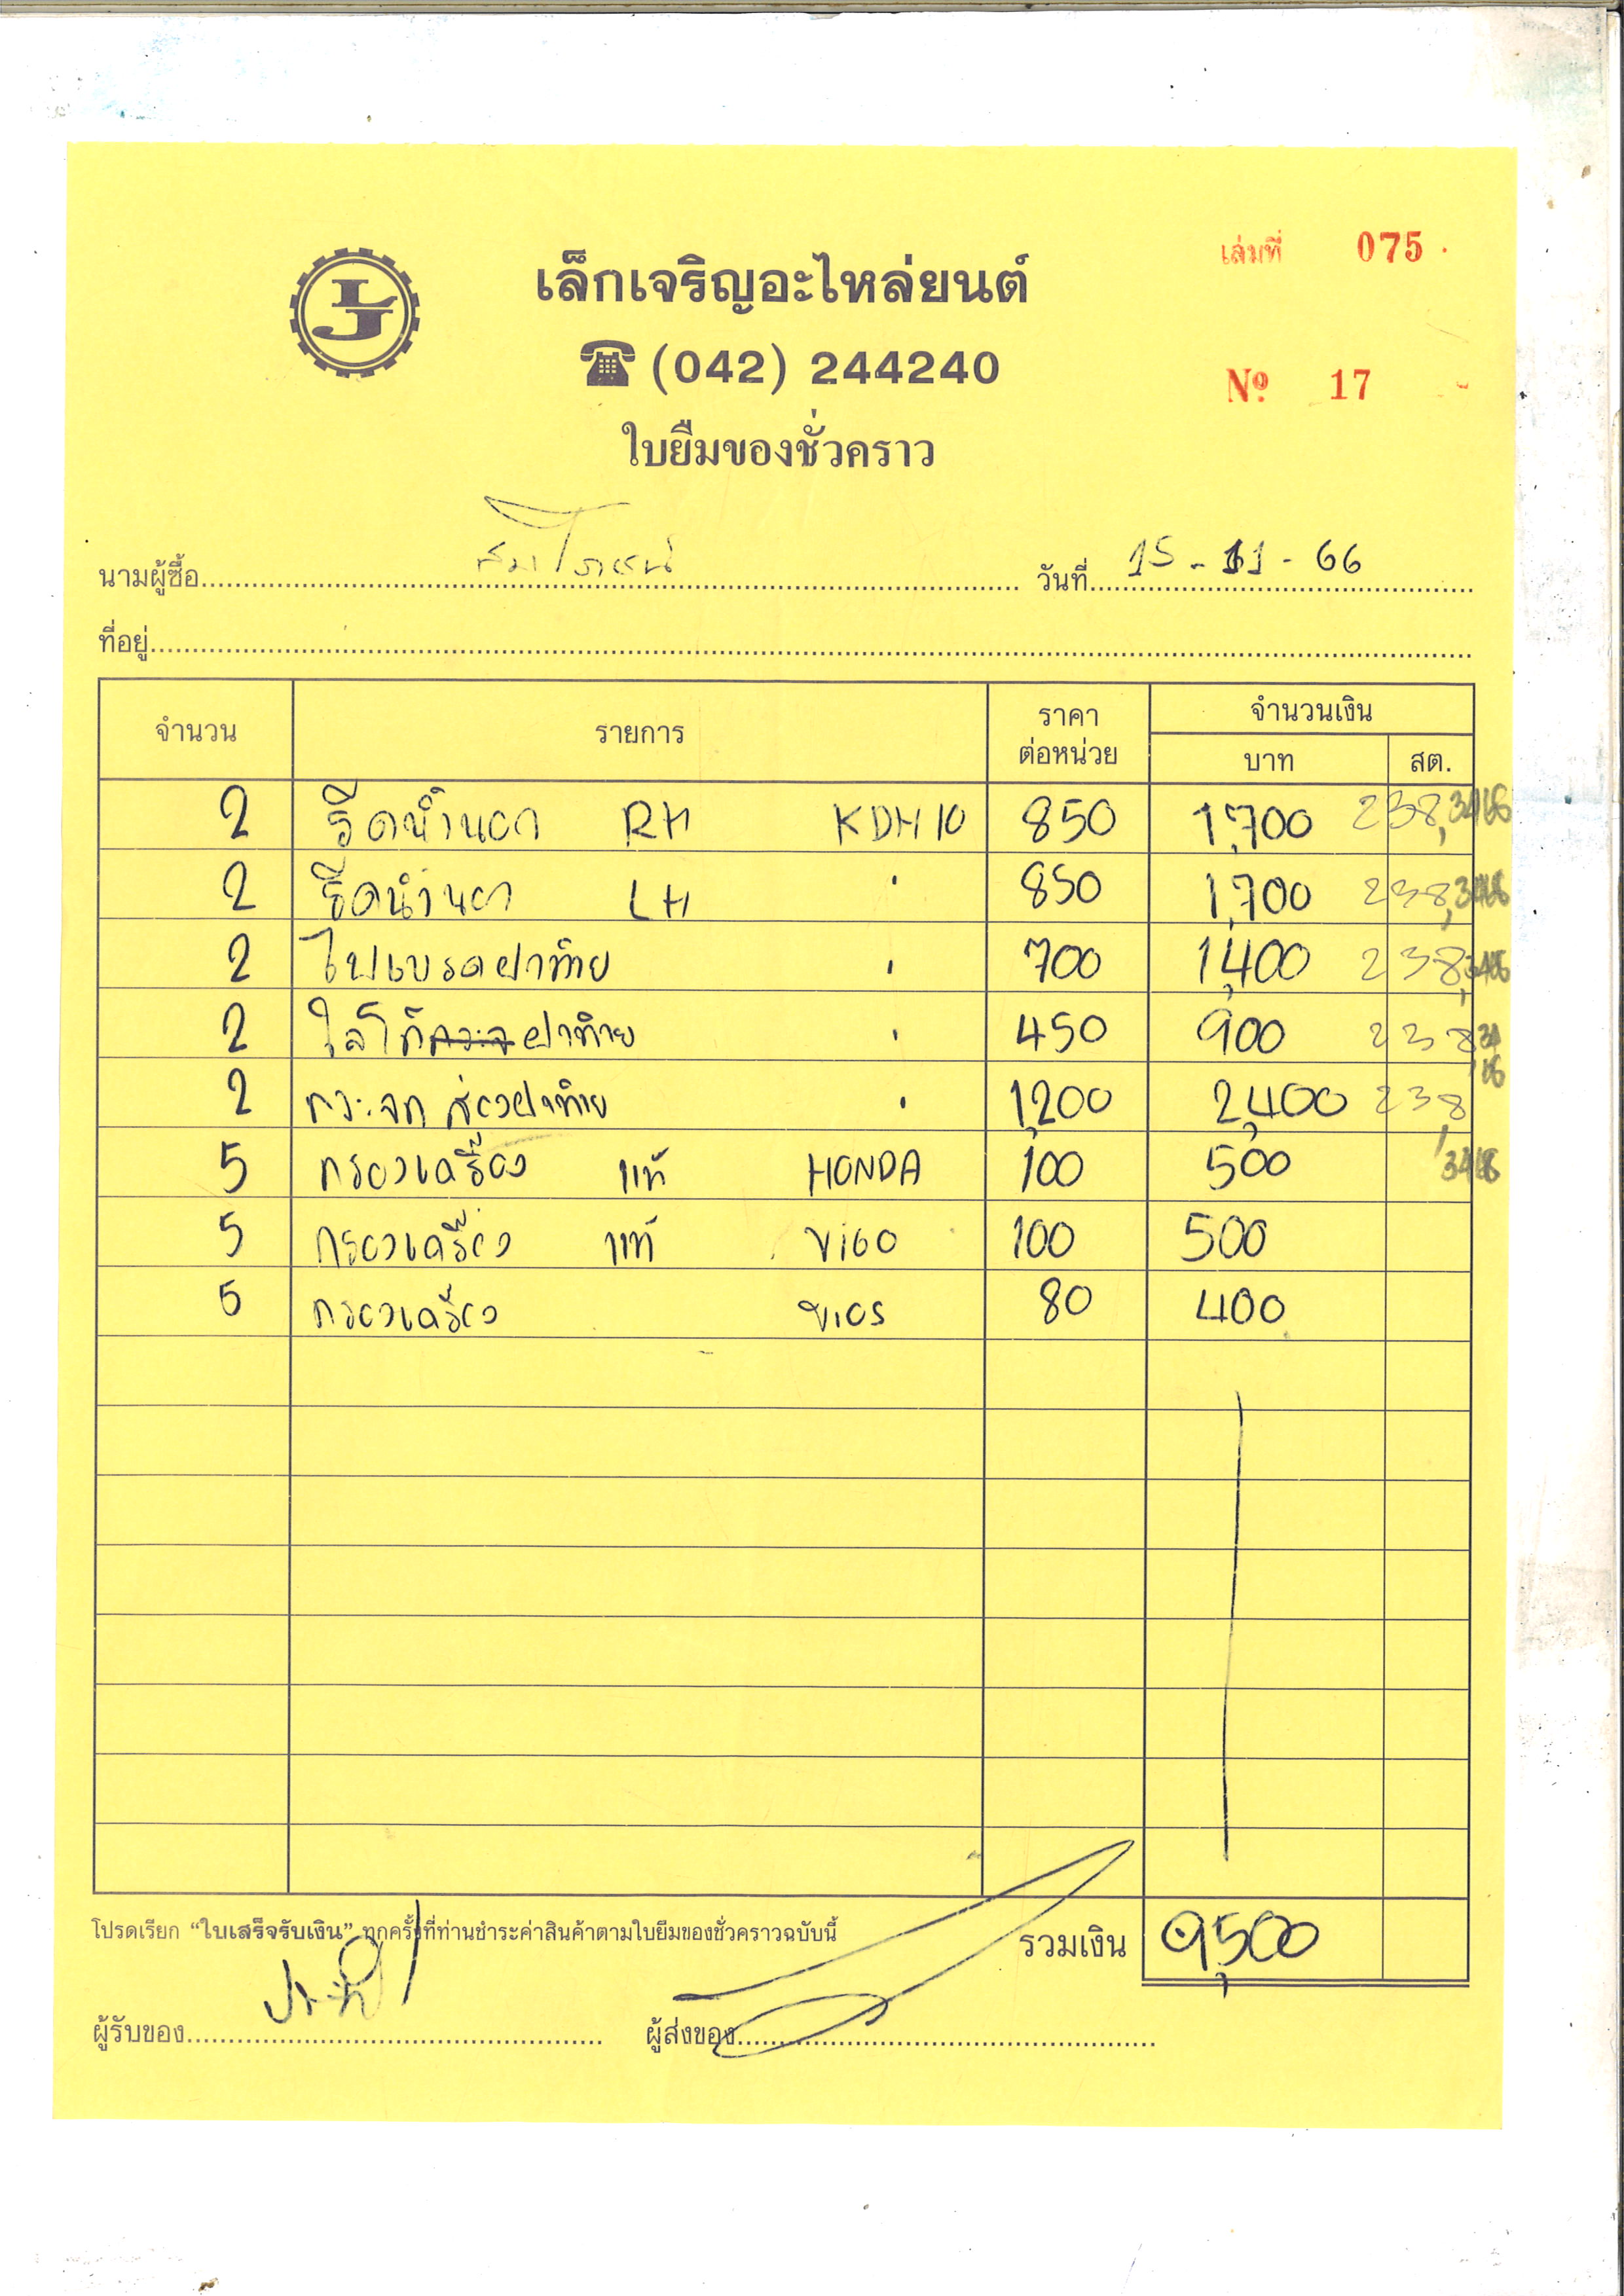 เล่มที่ 075
LJ
เล็กเจริญอะไหล่ยนต์
(042) 244240
Nº 17
ใบยืมของชั่วคราว
นามผู้ซื้อ วันที่ 15-11-66
ที่อยู่
จำนวน รายการ ราคาต่อหน่วย จำนวนเงิน
บาท สต.
2 รีดน้ำนอก RH KDH 10 850 1,700 238,
2 รีดน้ำนอก LH " 850 1,700 238,
2 ไฟเบรคฝาท้าย " 700 1,400 238,
2 ฝาท้าย " 450 900 238
2 กระจกส่องฝาท้าย " 1,200 2,400 238
5 กรองเครื่อง แท้ HONDA 100 500
5 กรองเครื่อง แท้ VIGO 100 500
5 กรองเครื่อง VIOS 80 400
โปรดเรียก “ใบเสร็จรับเงิน” ทุกครั้งที่ท่านชำระค่าสินค้าตามใบยืมของชั่วคราวฉบับนี้
รวมเงิน 9,500
ผู้รับของ ผู้ส่งของ